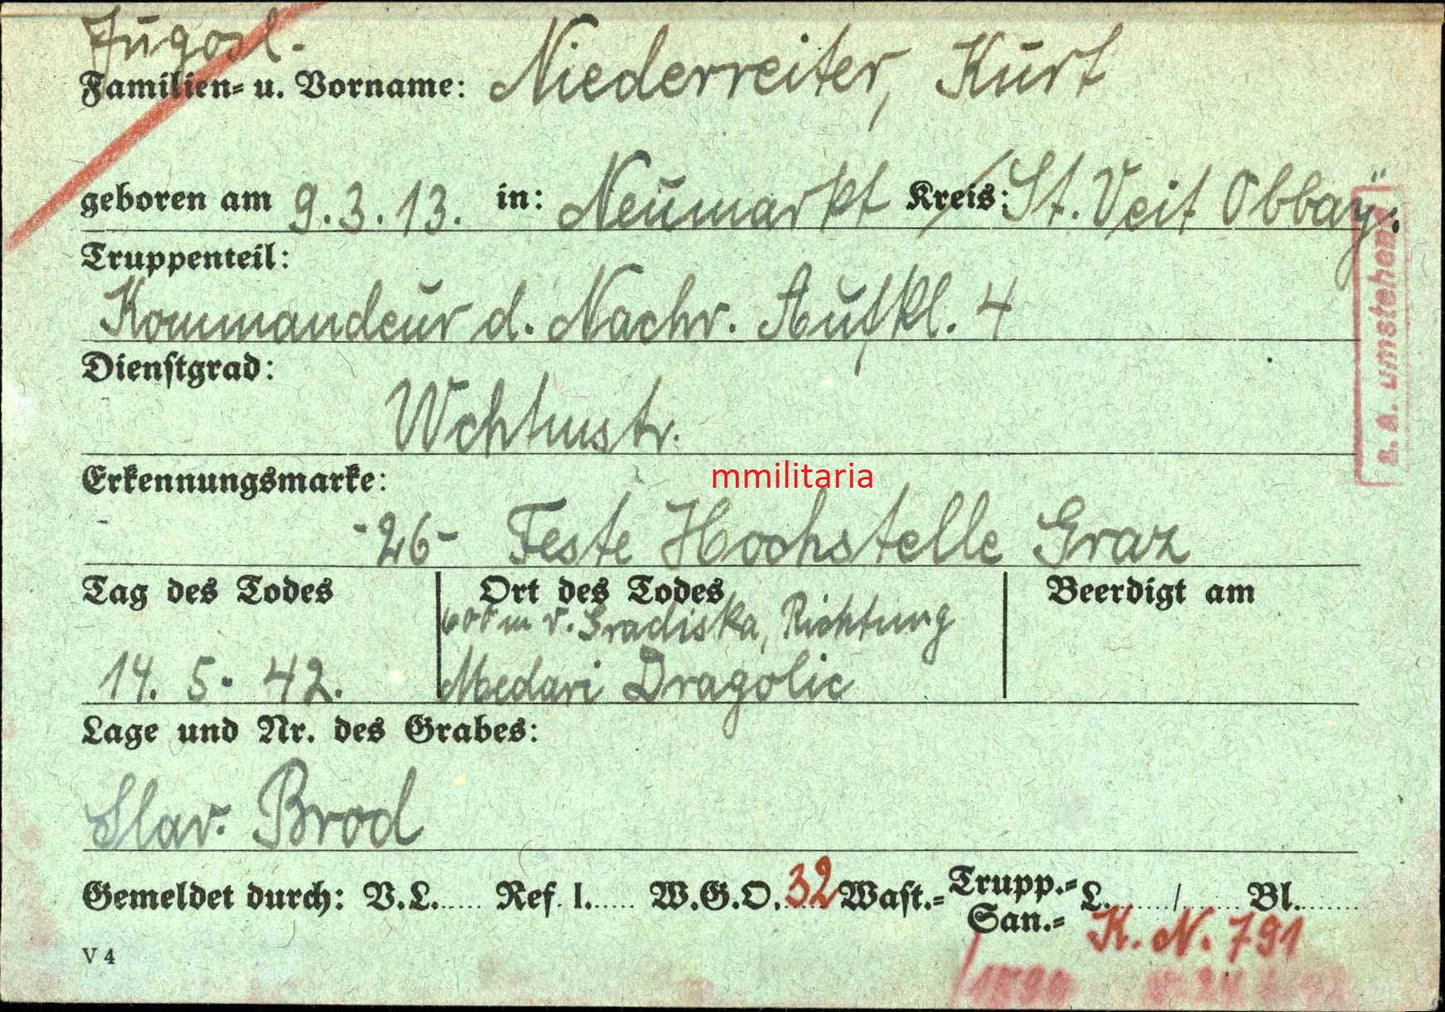 Jugosl.
Familien- u. Vorname: Niederreiter, Kurt
geboren am 9.3.13. in: Neumarkt Kreis: St. Veit Obbay.
Truppenteil:
Kommandeur d. Nachr. Aufkl. 4
Dienstgrad:
Wchtmstr.
Erkennungsmarke:
mmilitaria
-26- Feste Horchstelle Graz
Tag des Todes Ort des Todes Beerdigt am
600 m v. Gradiska, Richtung
14. 5. 42. Medari Dragolic
Lage und Nr. des Grabes:
Slav. Brod
Gemeldet durch: V.L. Ref. I. W.G.O. 32 Wast.- Trupp.- San.- L. / Bl.
K. N. 791
V 4
s. a. umstehend